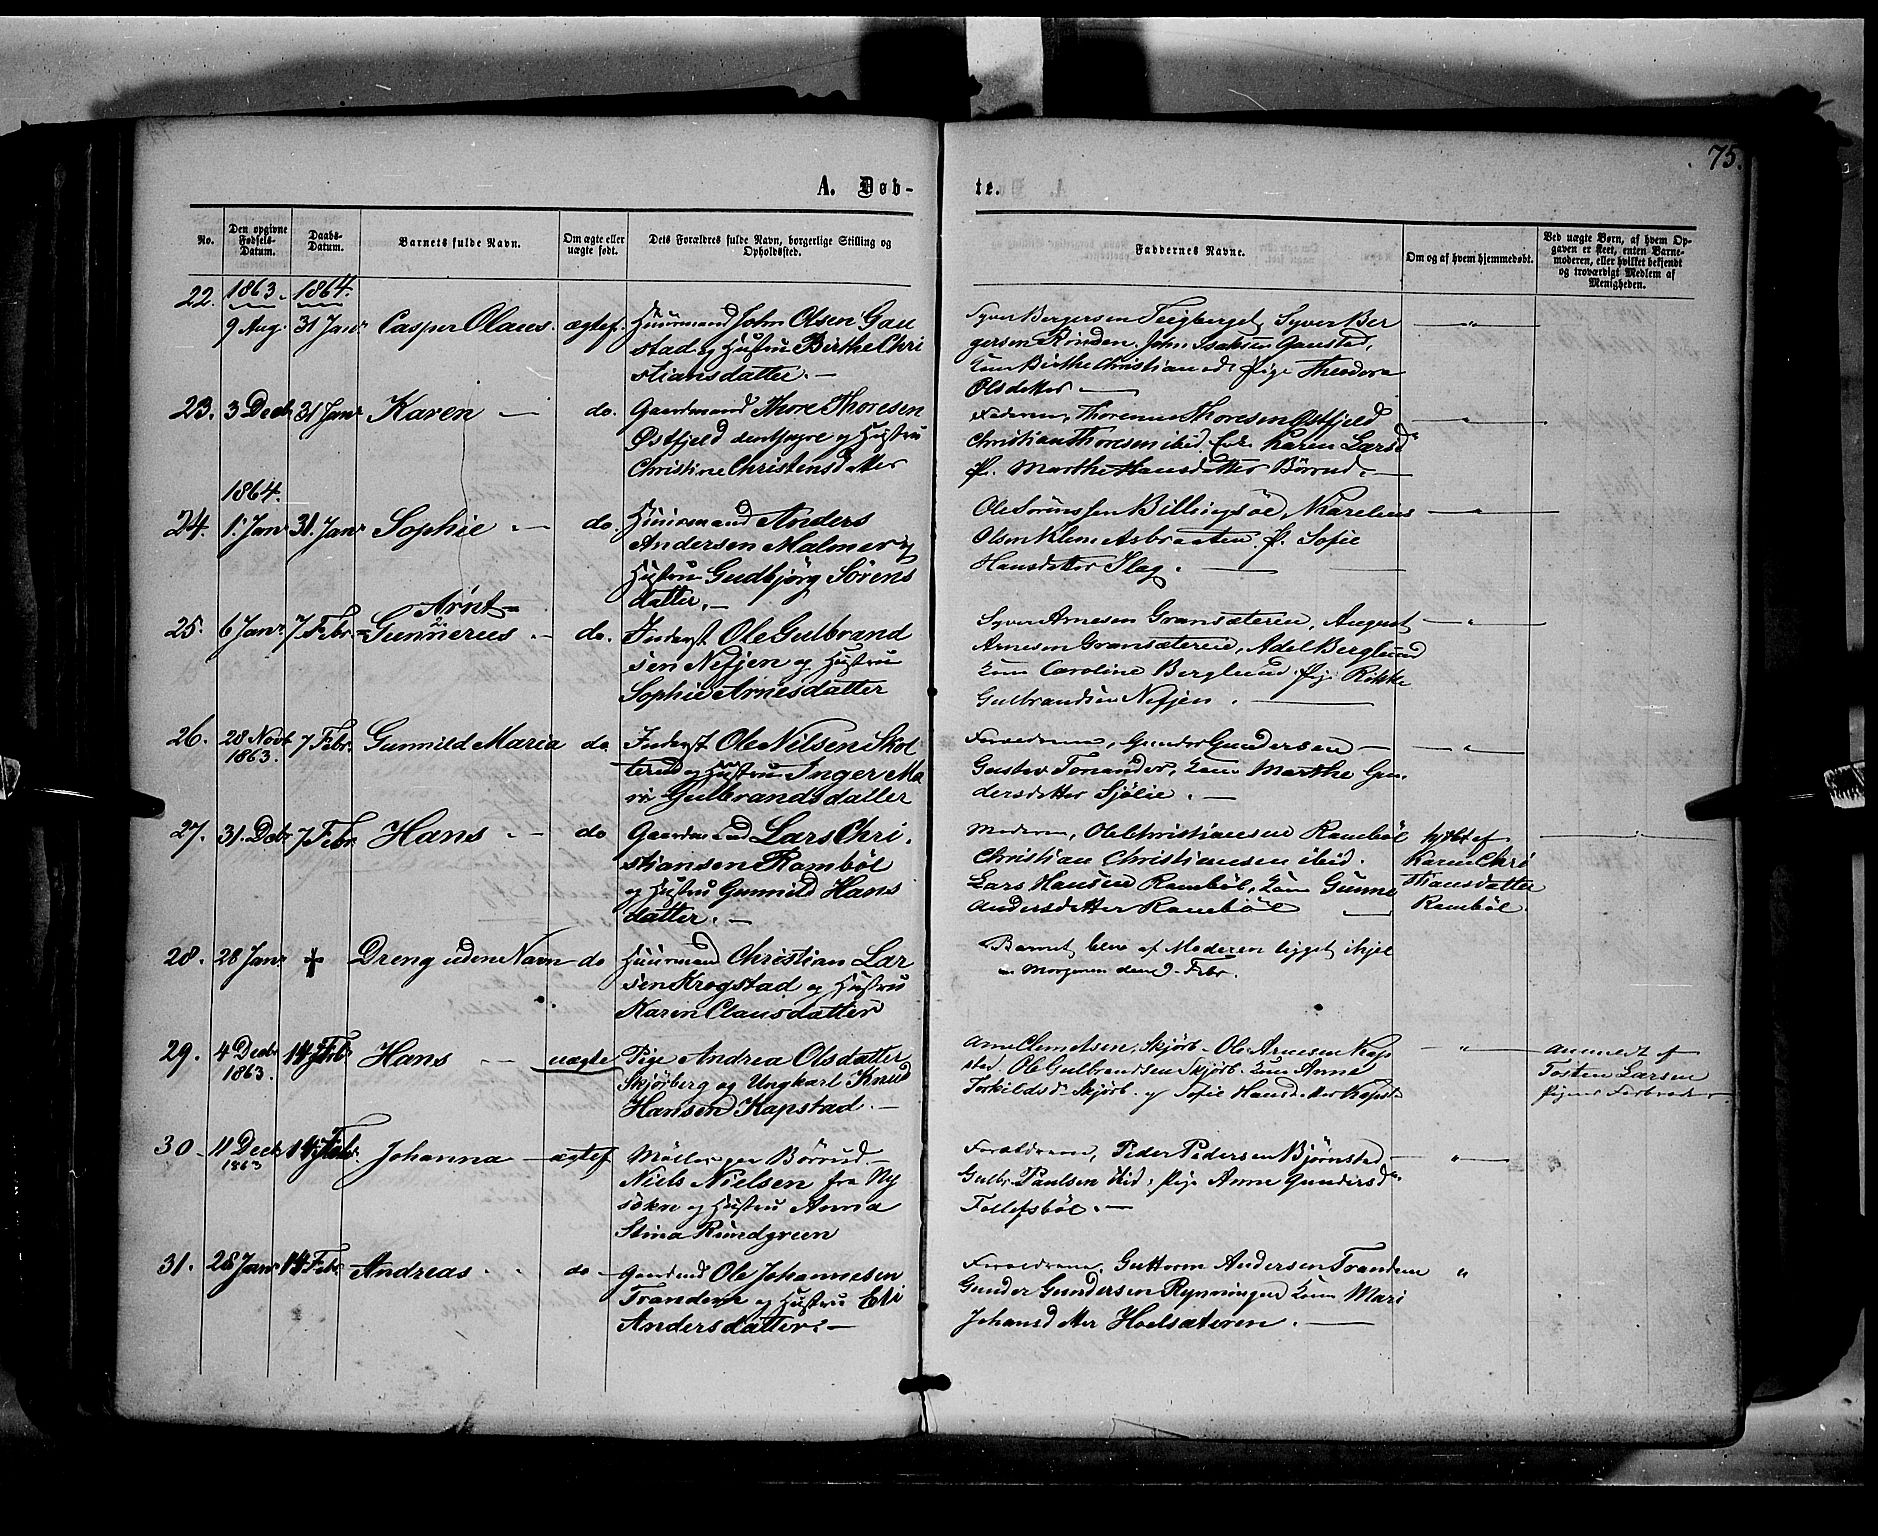 75.
A. Døb-
te.
No.
Den opgivne Fødsels-Datum.
Daabs-Datum.
Barnets fulde Navn.
Om ægte eller uægte født.
Dets Forældres fulde Navn, borgerlige Stilling og Opholdssted.
Faddernes Navne.
Om og af hvem hjemmedøbt.
Ved uægte Børn, af hvem Opgaven er skeet, enten Barnemoderen, eller hvilket bekjendt og troværdigt Medlem af Menigheden.
1863. 1864.
22. 9 Aug. 31 Janr Casper Olaus. ægtef. Huusmand John Olsen Gau
stad og Hustru Birthe Chri
stiansdatter. —
Syver Bergersen Teigberget, Syver Ber
gersen Rønden. John Isaksen Gaustad,
Kone Birthe Christiansd. Pige Theodora
Olsdatter —
23. 3 Decbr 31 Janr Karen — do. Gaardmand Thore Thoresen
Østfjeld den yngre og Hustru
Christine Christensdatter
Faderen, Thoresen Østfjeld
Christian Thoresen ibid. Karen Larsd
P. Marthe Hansdatter Børud. —
1864.
24. 1. Janr 31. Janr Sophie — do. Huusmand Anders
Andersen Malmer og
Hustru Gudbjørg Sørens
datter. —
Ole Billingsøe, Karelius
Olsen Asbraaten. P. Sofie
Hansdatter Slag. —
25. 6 Janr 7 Febr. Arnt
Gunnerus — do. Inderst Ole Gulbrand
sen Nefjen og Hustru
Sophie Arnesdatter
Syver Arnesen Gransæteren, August
Arnesen Gransæteren, Adel Berglund
Kone Caroline Berglund. Pige Rikke
Gulbrandsen Nefjen. —
26. 28 Novbr 1863. 7 Febr. Gunnild Maria do. Inderst Ole Nilsen Skol
terud og Hustru Inger Ma
ri Gulbrandsdatter
Forældrene, Gunder Gundersen —
Gustav Tonander, Kone Marthe Gun
dersdatter Sjølie. —
27. 31. Debr 7 Febr Hans — do Gaardmand Lars Chri
stiansen Rambøl
og Hustru Gunnild Hans
datter. —
Moderen, Ole Christiansen Rambøl
Christian Christiansen ibid.
Lars Hansen Rambøl, Kone Gunne
Andersdatter Rambøl —
hjdbt af
Karen Chri
stiansdatter
Rambøl.
28. 28 Janr + Dreng uden Navn do Huusmand Christian Lar
sen Krogstad og Hustru
Karen Clausdatter
Barnet blev af Moderen ligget ihjel
Morgenen den 9. Febr.
29. 4 Decbr 1863. 14 Febr Hans — uægte Pige Andrea Olsdatter
Skjørberg og Ungkarl Knud
Hansen Kapstad. —
Arne Clemetsen, Skjörb. Ole Arnesen Kap
stad. Ole Gulbrandsen Skjörb. Kone Anne
Torkildsd. Skjörb. og Sofie Hansdatter Kapst.
anmeldt af
Tosten Larsen
Pigens
30. 11 Decbr 1863 14 Febr. Johanna — ægtef Møller paa Børud.
Niels Nielsen fra Ny
sokne og Hustru Anna
Stina Rundgreen
Forældrene, Peder Pedersen Bjørnstad —
Gulbr. Paulsen ibid, Pige Anne Gundersdr
Follefsbøl. —
31. 28 Janr 14 Febr Andreas do — Gaardmd Ole Johannesen
Trandem og Hustru Eli
Andersdatter. —
Forældrene, Guttorm Andersen Trandem
Gunder Gundersen Rynningen Kone Mari
Johansdatter Hoelsæteren. —